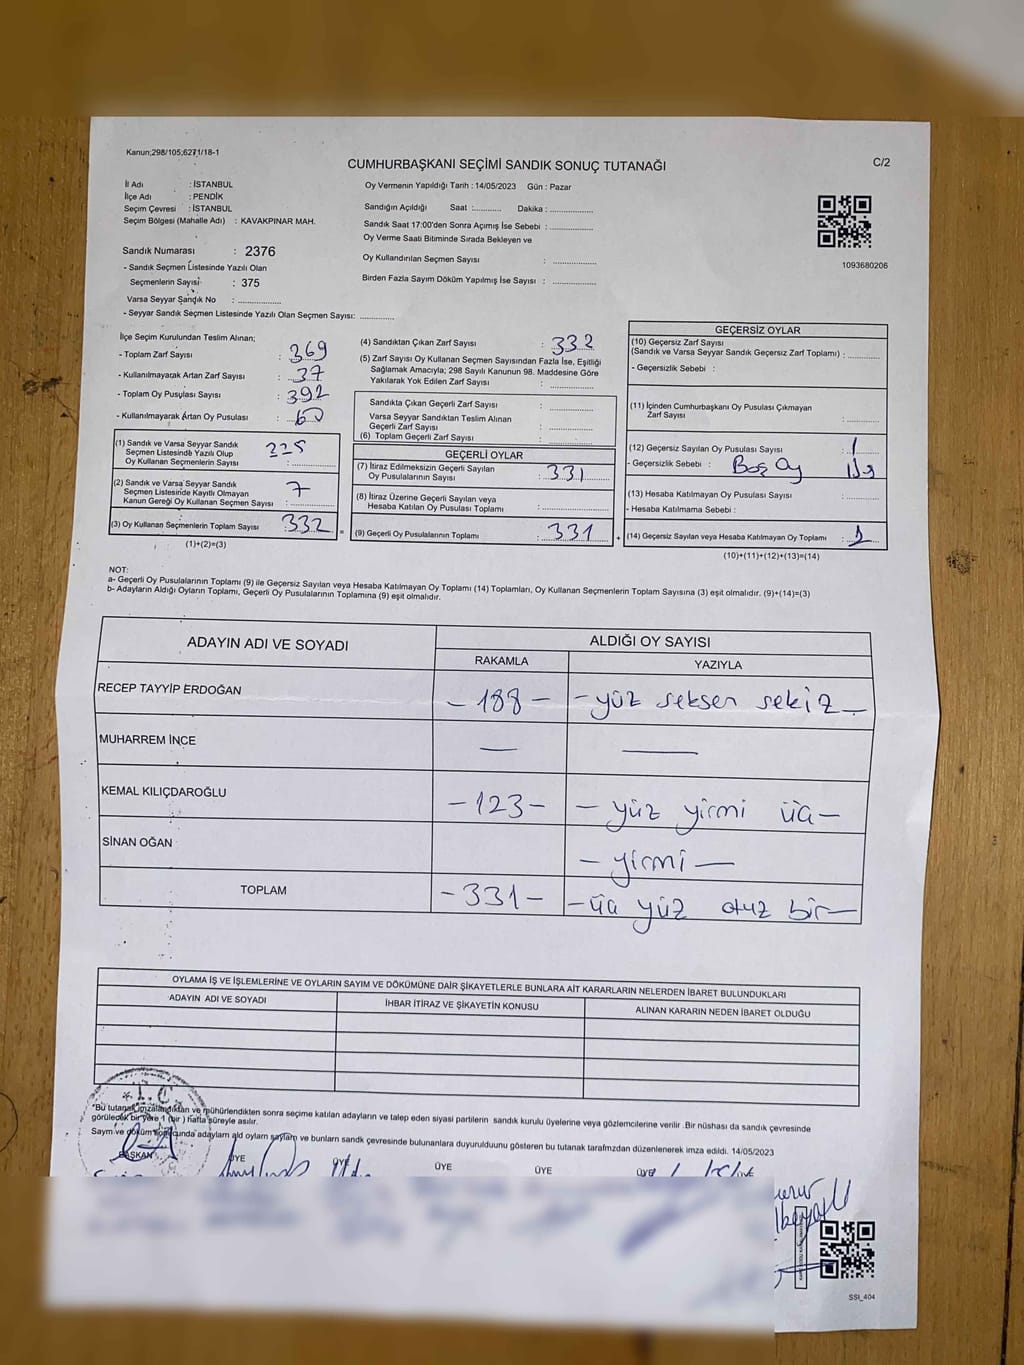 Kanun;298/105;6271/18-1
C/2
CUMHURBAŞKANI SEÇİMİ SANDIK SONUÇ TUTANAĞI
İl Adı : İSTANBUL
İlçe Adı : PENDİK
Seçim Çevresi : İSTANBUL
Seçim Bölgesi (Mahalle Adı) : KAVAKPINAR MAH.
Sandık Numarası : 2376
- Sandık Seçmen Listesinde Yazılı Olan
Seçmenlerin Sayısı : 375
Varsa Seyyar Sandık No : ..............
- Seyyar Sandık Seçmen Listesinde Yazılı Olan Seçmen Sayısı: ............
Oy Vermenin Yapıldığı Tarih : 14/05/2023 Gün : Pazar
Sandığın Açıldığı Saat :.......... Dakika : ...............
Sandık Saat 17:00'den Sonra Açımış İse Sebebi : ...............
Oy Verme Saati Bitiminde Sırada Bekleyen ve
Oy Kullandırılan Seçmen Sayısı : ...............
Birden Fazla Sayım Döküm Yapılmış İse Sayısı : ...............
1093680206
İlçe Seçim Kurulundan Teslim Alınan;
- Toplam Zarf Sayısı : 369
- Kullanılmayacak Artan Zarf Sayısı : 37
- Toplam Oy Pusulası Sayısı : 392
- Kullanılmayarak Artan Oy Pusulası : 60
(1) Sandık ve Varsa Seyyar Sandık
Seçmen Listesinde Yazılı Olup
Oy Kullanan Seçmenlerin Sayısı : 325
(2) Sandık ve Varsa Seyyar Sandık
Seçmen Listesinde Kayıtlı Olmayan
Kanun Gereği Oy Kullanan Seçmen Sayısı : 7
(3) Oy Kullanan Seçmenlerin Toplam Sayısı : 332 =
(1)+(2)=(3)
(4) Sandıktan Çıkan Zarf Sayısı : 332
(5) Zarf Sayısı Oy Kullanan Seçmen Sayısından Fazla İse, Eşitliği
Sağlamak Amacıyla; 298 Sayılı Kanunun 98. Maddesine Göre
Yakılarak Yok Edilen Zarf Sayısı : ...............
Sandıkta Çıkan Geçerli Zarf Sayısı : ...............
Varsa Seyyar Sandıktan Teslim Alınan
Geçerli Zarf Sayısı : ...............
(6) Toplam Geçerli Zarf Sayısı : ...............
GEÇERLİ OYLAR
(7) İtiraz Edilmeksizin Geçerli Sayılan
Oy Pusulalarının Sayısı : 331
(8) İtiraz Üzerine Geçerli Sayılan veya
Hesaba Katılan Oy Pusulası Toplamı : ...............
(9) Geçerli Oy Pusulalarının Toplamı : 331 +
GEÇERSİZ OYLAR
(10) Geçersiz Zarf Sayısı
(Sandık ve Varsa Seyyar Sandık Geçersiz Zarf Toplamı) : ............
- Geçersizlik Sebebi :
(11) İçinden Cumhurbaşkanı Oy Pusulası Çıkmayan
Zarf Sayısı : ............
(12) Geçersiz Sayılan Oy Pusulası Sayısı : 1
- Geçersizlik Sebebi : Boş Oy
(13) Hesaba Katılmayan Oy Pusulası Sayısı : ............
- Hesaba Katılmama Sebebi :
(14) Geçersiz Sayılan veya Hesaba Katılmayan Oy Toplamı : 1
(10)+(11)+(12)+(13)=(14)
NOT:
a- Geçerli Oy Pusulalarının Toplamı (9) ile Geçersiz Sayılan veya Hesaba Katılmayan Oy Toplamı (14) Toplamları, Oy Kullanan Seçmenlerin Toplam Sayısına (3) eşit olmalıdır. (9)+(14)=(3)
b- Adayların Aldığı Oyların Toplamı, Geçerli Oy Pusulalarının Toplamına (9) eşit olmalıdır.
ADAYIN ADI VE SOYADI ALDIĞI OY SAYISI
RAKAMLA YAZIYLA
RECEP TAYYİP ERDOĞAN - 188 - - yüz seksen sekiz -
MUHARREM İNCE — —
KEMAL KILIÇDAROĞLU - 123 - - yüz yirmi üç -
SİNAN OĞAN - yirmi -
TOPLAM - 331 - - üç yüz otuz bir -
OYLAMA İŞ VE İŞLEMLERİNE VE OYLARIN SAYIM VE DÖKÜMÜNE DAİR ŞİKAYETLERLE BUNLARA AİT KARARLARIN NELERDEN İBARET BULUNDUKLARI
ADAYIN ADI VE SOYADI İHBAR İTİRAZ VE ŞİKAYETİN KONUSU ALINAN KARARIN NEDEN İBARET OLDUĞU
T.C
*Bu tutanak imzalandıktan ve mühürlendikten sonra seçime katılan adayların ve talep eden siyasi partilerin sandık kurulu üyelerine veya gözlemcilerine verilir .Bir nüshası da sandık çevresinde
görülecek bir yere 1 (bir ) hafta süreyle asılır.
Sayım ve döküm sonucunda adaylam ald oylarn saylarn ve bunlarn sandk çevresinde bulunanlara duyurulduunu gösteren bu tutanak tarafmzdan düzenlenerek imza edildi. 14/05/2023
BAŞKAN ÜYE ÜYE ÜYE ÜYE ÜYE
SSI_404